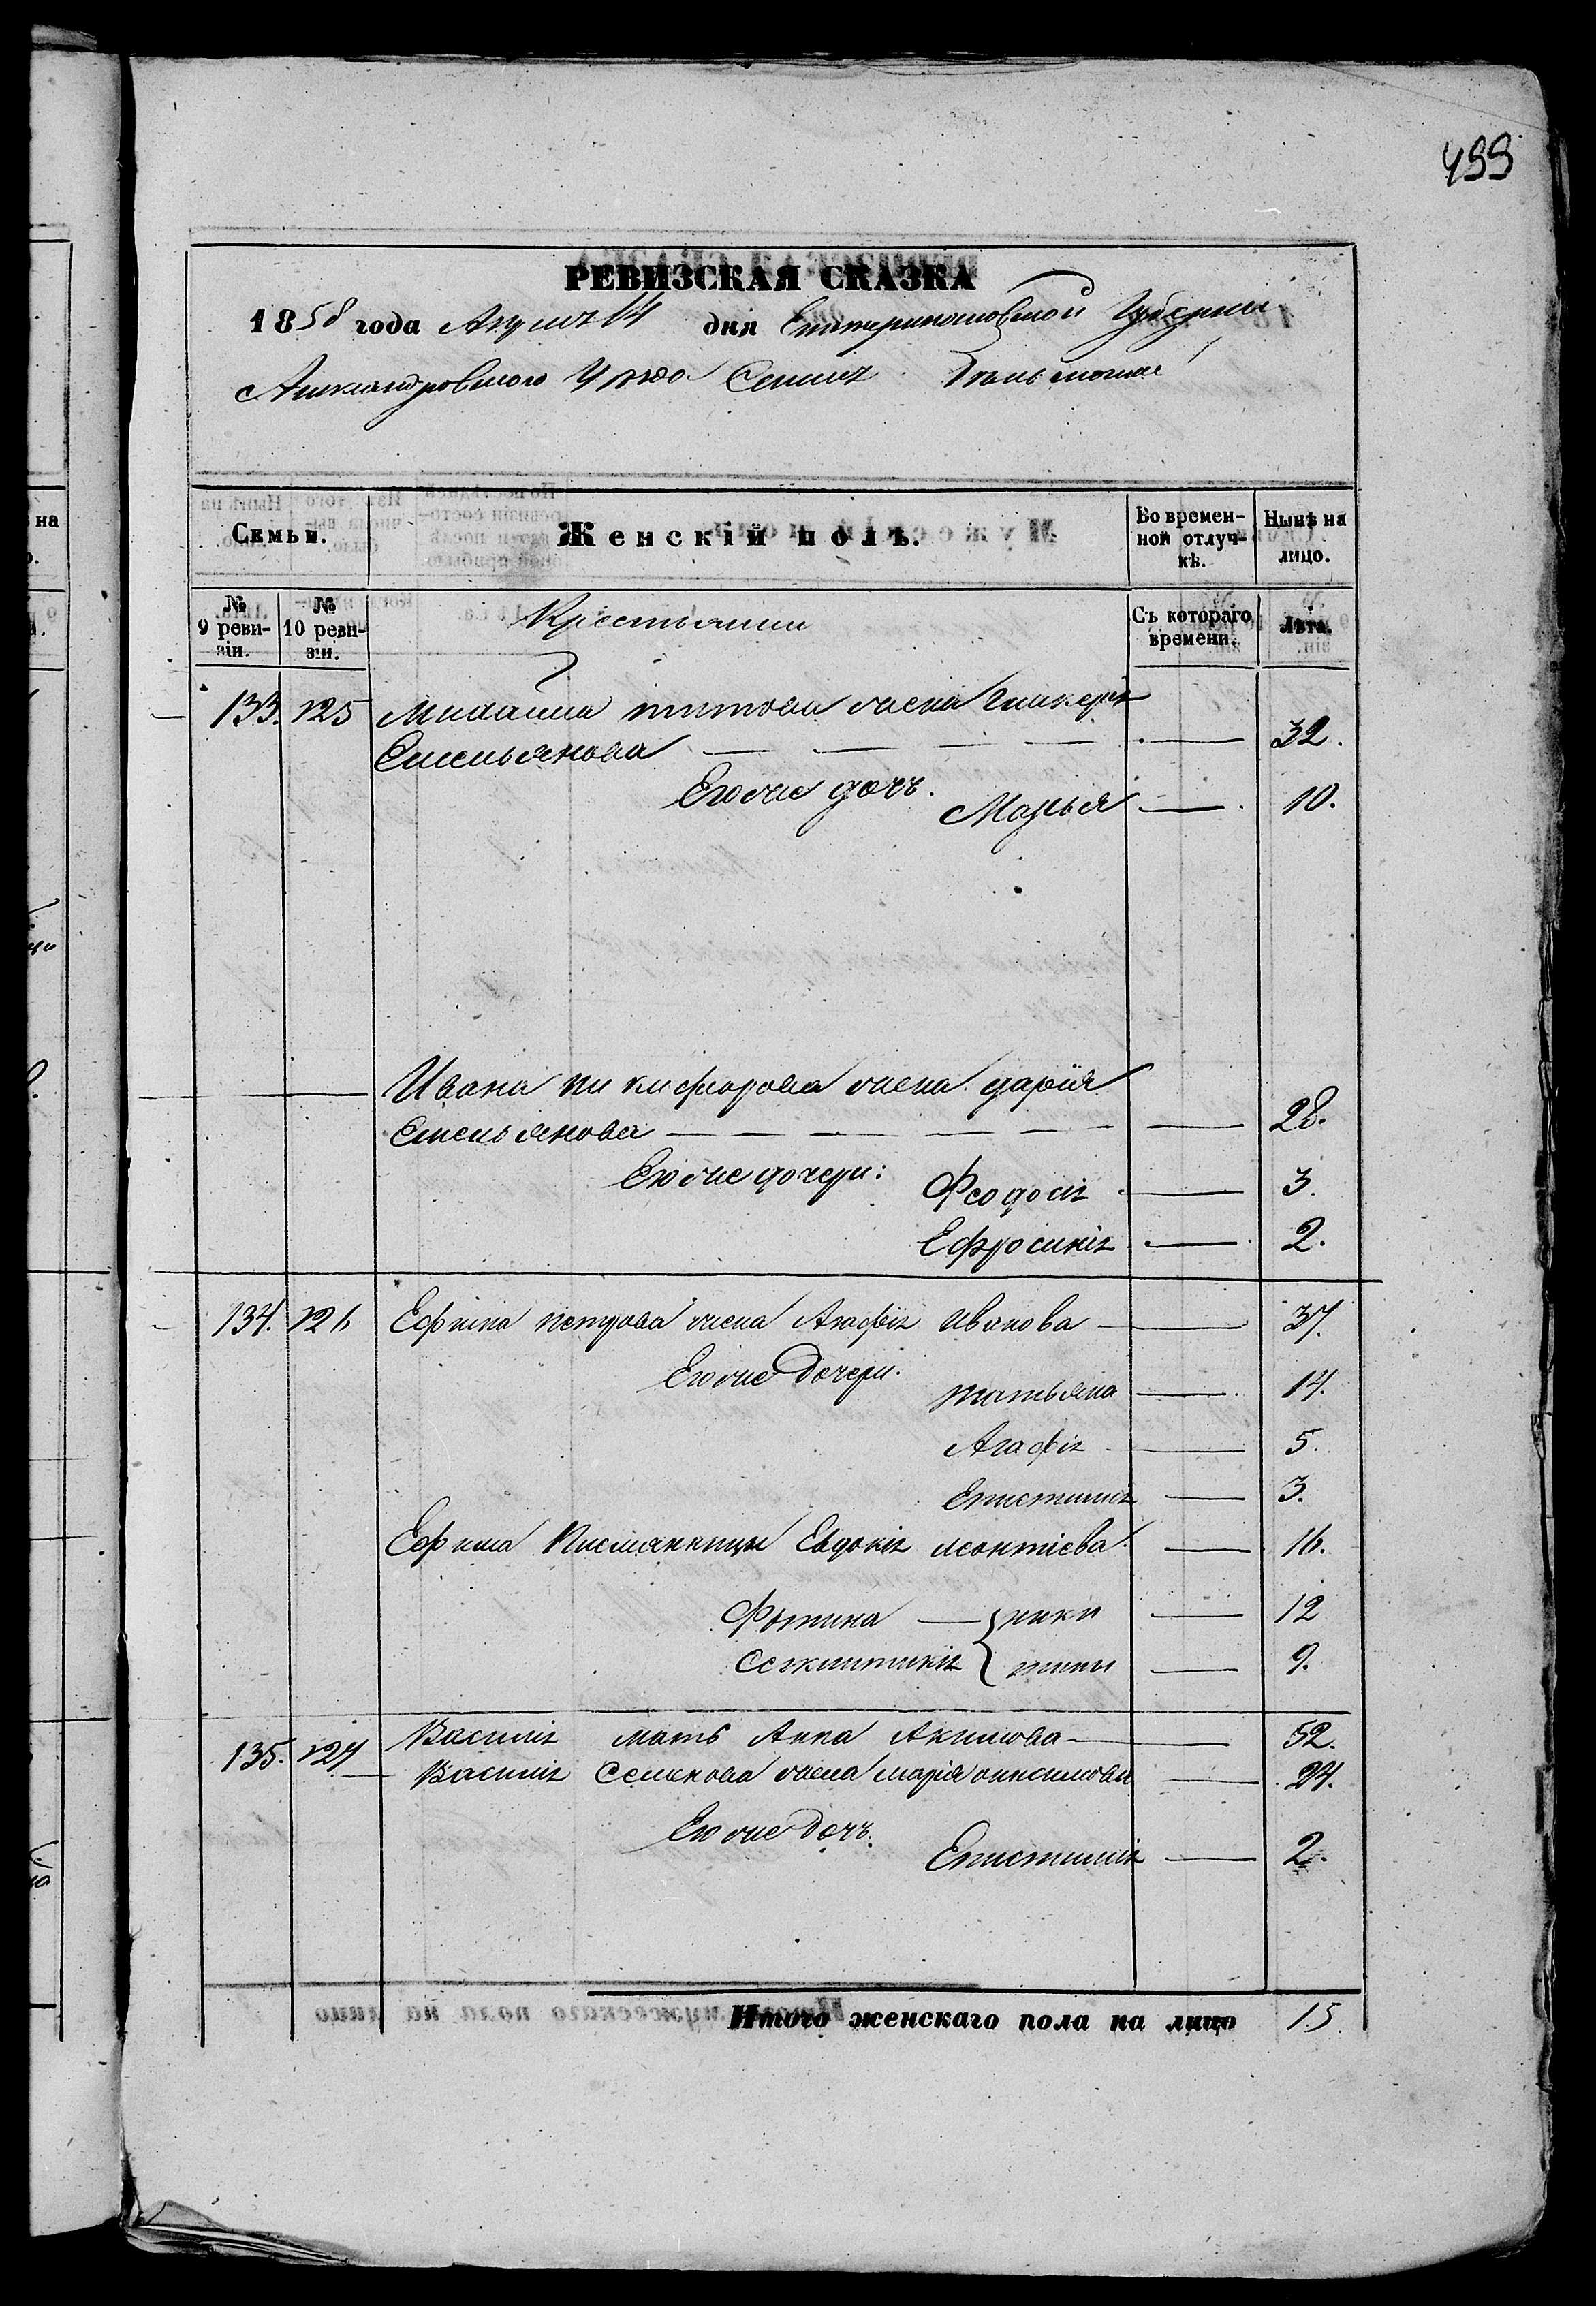 499
РЕВИЗСКАЯ СКАЗКА
1858 года Апреля 14 дня Екатеринославской Губернии
Александровского Уезда Селенія
Семьи.
Женскій полъ.
Во времен-
ной отлуч-
кѣ.
Нынѣ на
лицо.
№
9 реви-
зіи.
№
10 реви-
зіи.
Крестьянии
Съ котораго
времени.
Лѣта.
133. 125 Михаила титова жена Гликерія
Емельянова — — — — — 32.
Его же дочь.
Марья — 10.
Ивана никифорова жена дарія
Емельянова — — — — — 28.
Его же дочери:
Феодосія — 3.
Ефросинія — 2.
134. 126 Ефима петрова жена Агафія Иванова — 37.
Его же Дочери.
татьяна — 14.
Агафія — 5
Епистимія — 3.
Ефима племянницы Евдокія леонтіева — 16.
Фотина — 12
9.
135. 127 Василія мать Анна Акимова — 52.
Василія Семенова жена марія онисимова — 24.
Его же Дочь.
Епистимія — 2.
Итого женскаго пола на лицо 15